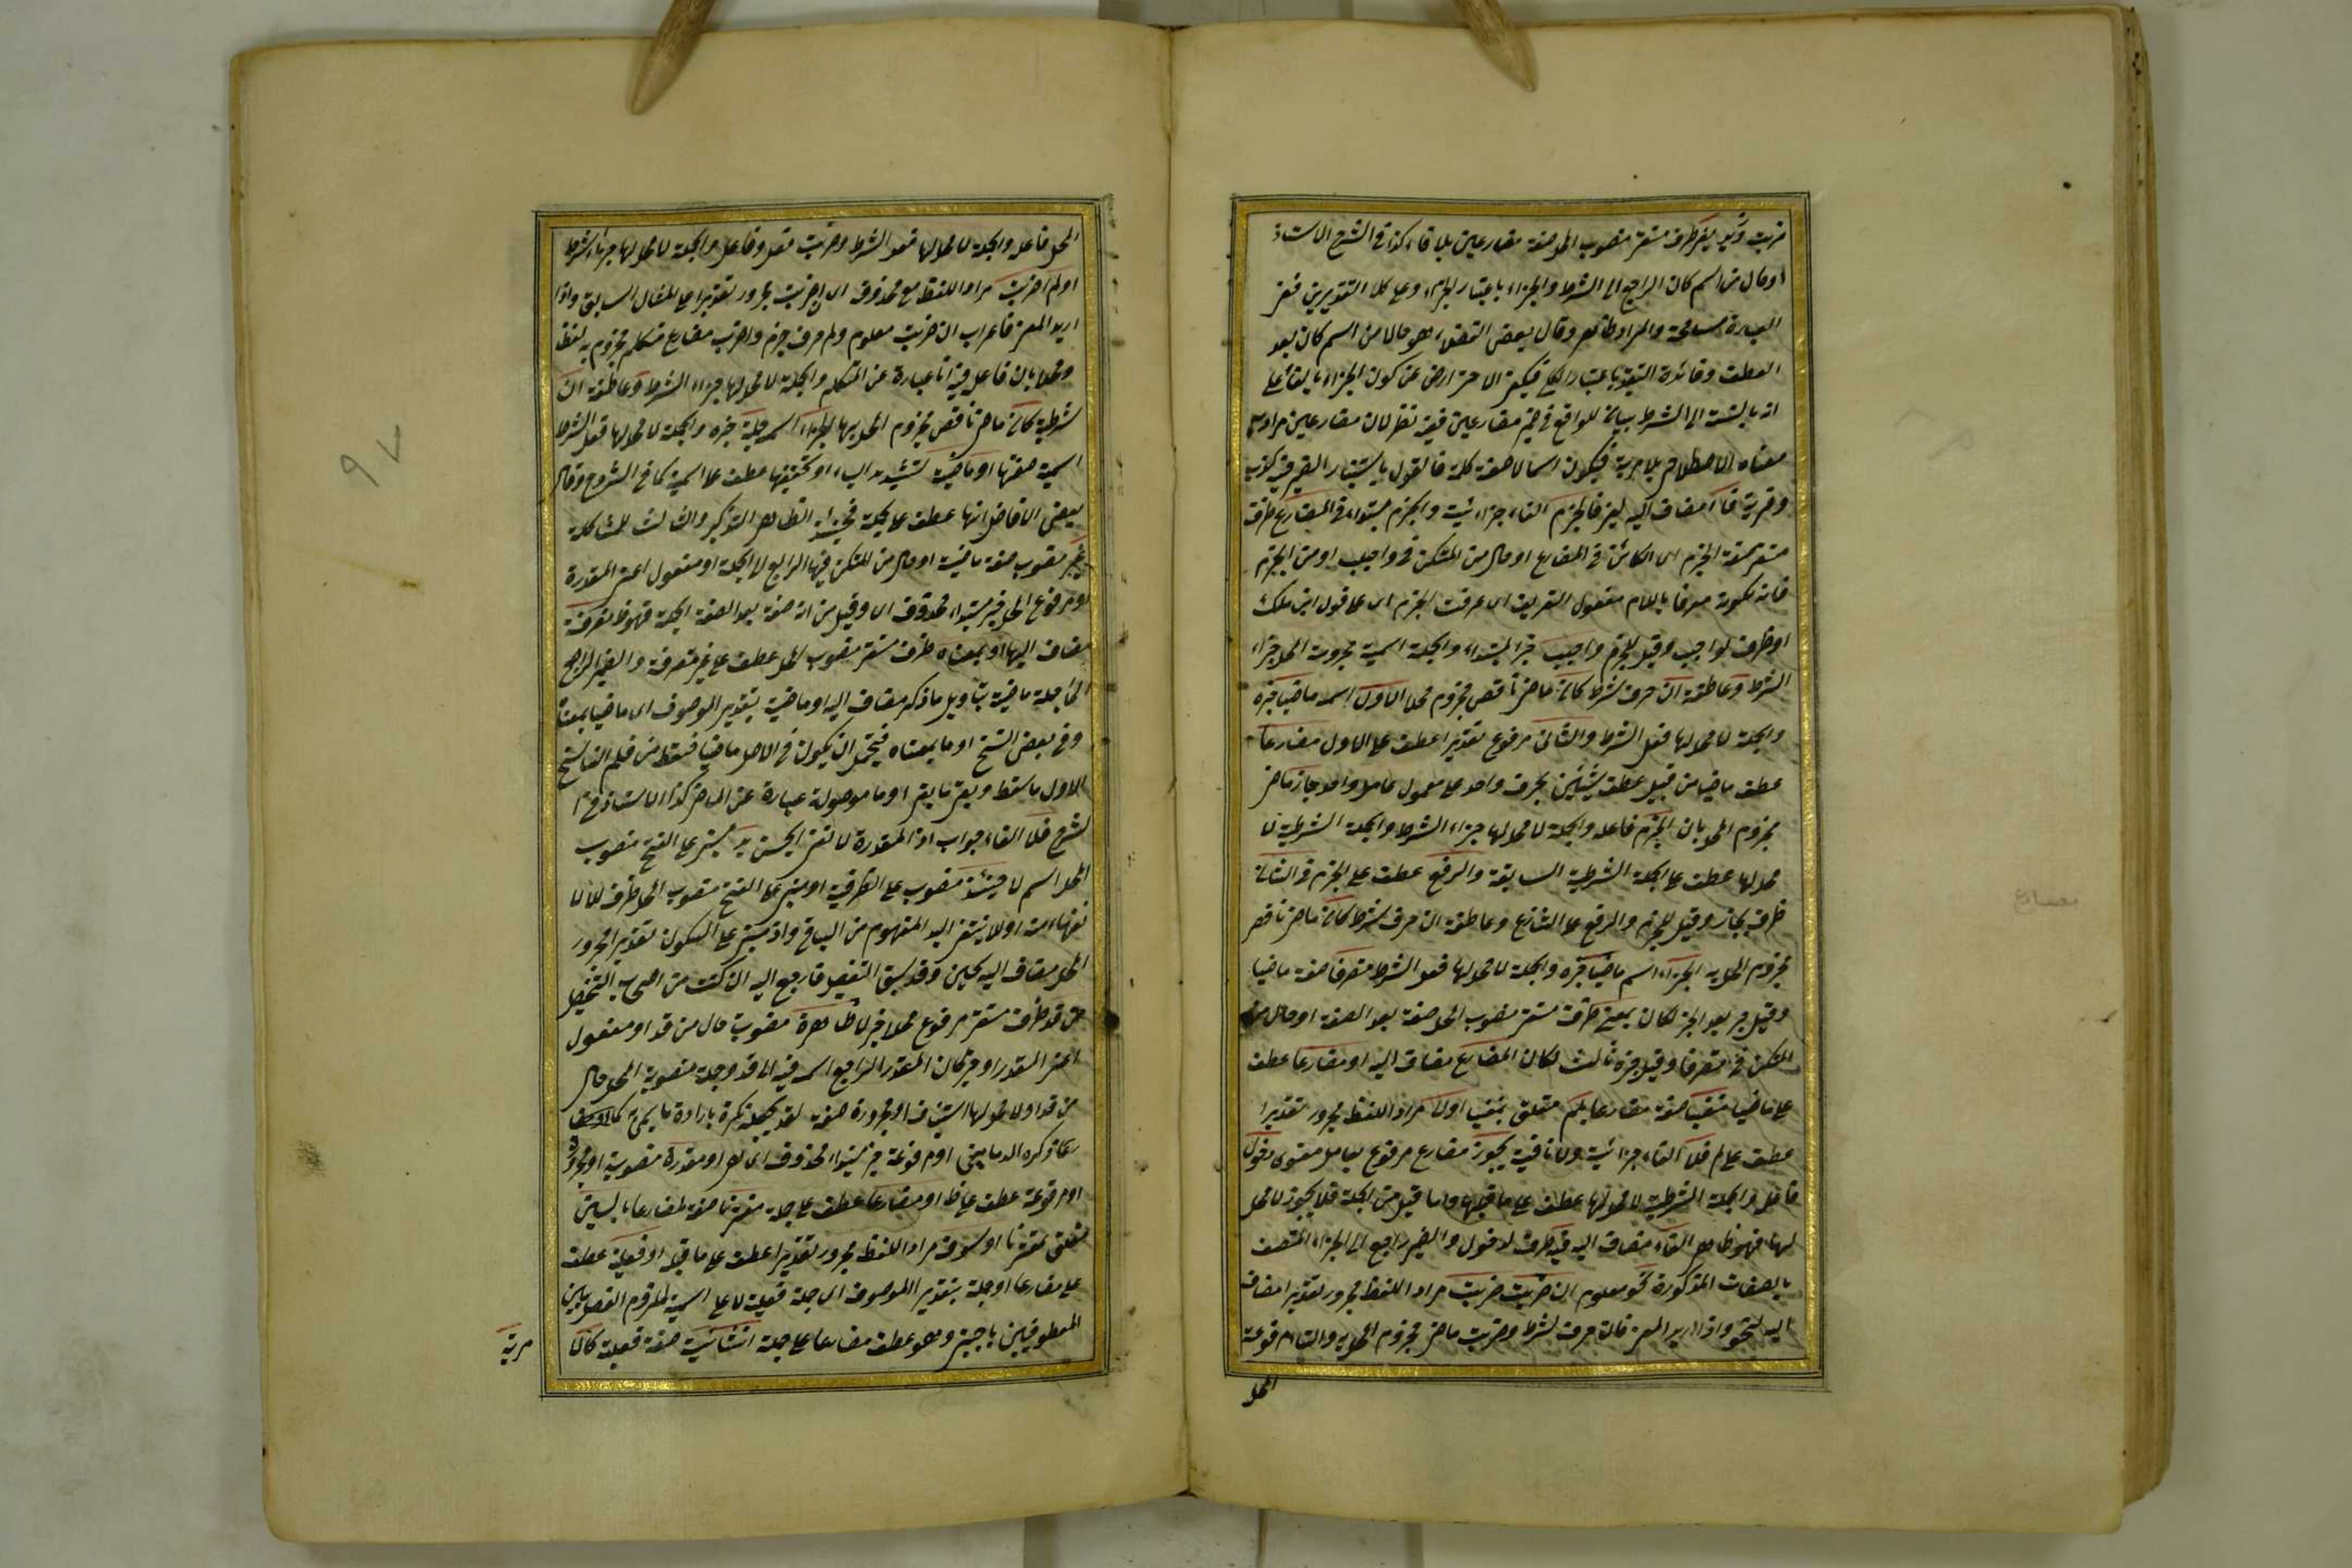 ضربت وزيد بغير ظرف مستقر منصوب المحل صفة مضارعين بلا فاء كذا في الشرح الاستاذ
او حال من اسم كان الراجع الى الشرط والجزاء باعتبار الجزاء وعلى كلا التقديرين ففى
العبارة مسامحة والمراد ظاهر وقال بعض الفضلاء هو حال من اسم كان بعد
العطف وفائدة التقييد باعتبار الكل فيكفى الاحتراز عن كون الجزاء بالفاء على
انه بالنسبة الى الشرط بيان للواقع في حيز مضارعين ففيه نظر لان مضارعين مراد به
معناه الاصطلاحي بلا مرية فيكون اسما لا صفة كلمة فالقول باستتار الضمير فيه كذب
وفرية فا مضاف اليه لغير فالجزم الفاء جزائية والجزم مبتداء في المضارع ظرف
مستقر صفة الجزم اى الكائن في المضارع او حال من المستكن في واجب او من الجزم
فانه لكونه معرفا باللام مفعول التعريف اى عرفت الجزم اى على قول ابن مالك
او ظرف لواجب وقيل للجزم واجب خبر المبتداء والجملة اسمية مجزومة المحل جزاء
الشرط وعاطفة ان حرف شرط كان ماض ناقص مجزوم محلا الاول اسمه ماضيا خبره
والجملة لا محل لها فعل الشرط والثاني مرفوع تقديرا عطف على الاول مضارعا
عطف ماضيا من قبيل عطف شيئين بحرف واحد على معمولى عامل واحد جاز ماض
مجزوم المحل بان الجزم فاعله والجملة لا محل لها جزاء الشرط والجملة الشرطية لا
محل لها عطف على الجملة الشرطية السابقة والرفع عطف على الجزم في الثاني
ظرف لجاز وقيل للجزم والرفع على التنازع وعاطفة ان حرف شرط كان ماض ناقص
مجزوم المحل به الجزاء اسمه ماضيا خبره والجملة لا محل لها فعل الشرط متصرفا صفة ماضيا
وقيل خبر بعد الخبر لكان بمعنى ظرف مستقر منصوب المحل صفة بعد الصفة او حال من
المستكن في متصرفا وقيل خبره ثالث لكان المضارع مضاف اليه او مضارعا عطف
على ماضيا منفيا صفة مضارعا بلم متعلق بمنفيا او لما مراد اللفظ مجرور تقديرا
عطف على لم فلا الفاء جزائية ولا نافية يجوز مضارع مرفوع بعامل معنوى دخول
فاعل والجملة الشرطية لا محل لها عطف على ما قبلها واما قيل من الجملة فلا يجوز لا محل
لها فهو ظاهر الفاء مضاف اليه فيه ظرف لدخول والضمير راجع الى الجزاء المتصف
بالصفات المذكورة نحو معلوم ان ضربت ضربت مراد اللفظ مجرور تقديرا مضاف
اليه لنحو واذا اريد المعنى فان حرف شرط وضربت ماض مجزوم المحل به والتاء مرفوعة
المحل
المحل فاعله والجملة لا محل لها فعل الشرط وضربت فعل وفاعل والجملة لا محل لها جزاء الشرط
او لم اضرب مراد اللفظ مع محذوف اى ان ضربت مجرور تقديرا على المثال السابق واذا
اريد المعنى فاعراب ان ضربت معلوم ولم حرف جزم واضرب مضارع متكلم مجزوم به لفظا
ومحلا بان فاعل فيه انا عبارة عن المتكلم والجملة لا محل لها جزاء الشرط وعاطفة ان
شرطية كان ماض ناقص مجزوم المحل بها الجزاء اسمه جملة خبره والجملة لا محل لها فعل الشرط
اسمية صفتها او ماضية بتشديد الياء او تخفيفها عطف على اسمية كما في الشروح وقال
بعض الافاضل انها عطف على جملة فحينئذ الظاهر التذكير والتانيث للمشاكلة
غير منصوب صفة ماضية او حال من المستكن فيها الراجع الى الجملة او مفعول اعنى المقدرة
او مرفوع المحل خبر مبتداء محذوف اى وقيل من انه صفة بعد الصفة لجملة فهو ظ متصرفة
مضاف اليها او بمعناه ظرف مستقر منصوب المحل عطف على غير متصرفة والضمير الراجع
الى جملة ماضية بتأويل ما ذكر مضاف اليه او ماضية بتقدير الموصوف اى ماضيا بمعناه
وفي بعض النسخ او ما بمعناه فيحتمل ان يكون في الاصل ماضيا فسقط من قلم الناسخ
الاول ما سقط وبقى ما بقى او ما موصولة عبارة عن الماضى كذا الاستاذ في
الشرح فلا الفاء جواب اذا المقدرة لا لنفى الجنس بد مبنى على الفتح منصوب
المحل اسم لا حينئذ منصوب على الظرفية او مبنى على الفتح منصوب المحل ظرف للا لا
نفيها منه اولا ينتفى البد المفهوم من السياق واذ مبنى على السكون تقدير مجرور
المحل مضاف اليه لحين وقد سبق التفصيل فارجع اليه ان كنت من اصحاب التحصيل
من قد ظرف مستقر مرفوع محلا خبر لا ظاهرة منصوبة حال من قد او مفعول
اعنى المقدر او خبر كان المقدر الراجع اسمه فيه الى قد وجملة منصوبة المحل حال
من قد او لا محل لها استيناف او مجرورة صفة لقد بجعله نكرة بارادة ما يسمى
على ما ذكره الدمامينى او مرفوعة خبر مبتداء محذوف اى هى او مقدرة منصوبة او مجرورة
او مرفوعة عطف على ظ او مضارعا عطف على جملة مقترنا صفة لمضارعا بالسين
متعلق بمقترنا او سوف مراد اللفظ مجرور تقديرا عطف على ما قبله او فعلية عطف
على مضارعا او جملة بتقدير الموصوف اى جملة فعلية لا على اسمية للزوم الفصل بين
المعطوفين باجنبى وهو عطف مضارعا على جملة انشائية صفة فعلية كالا
مرية